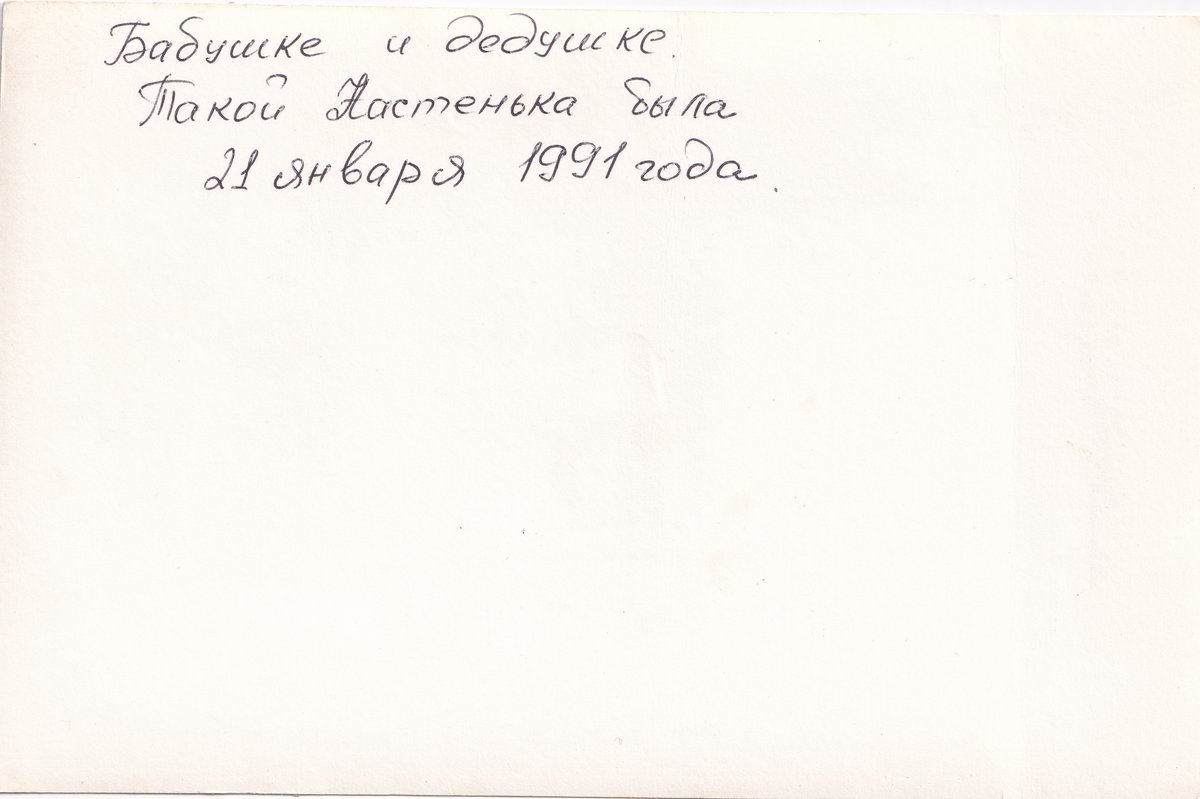 Бабушке и дедушке.
Такой Настенька была
21 января 1991 года.